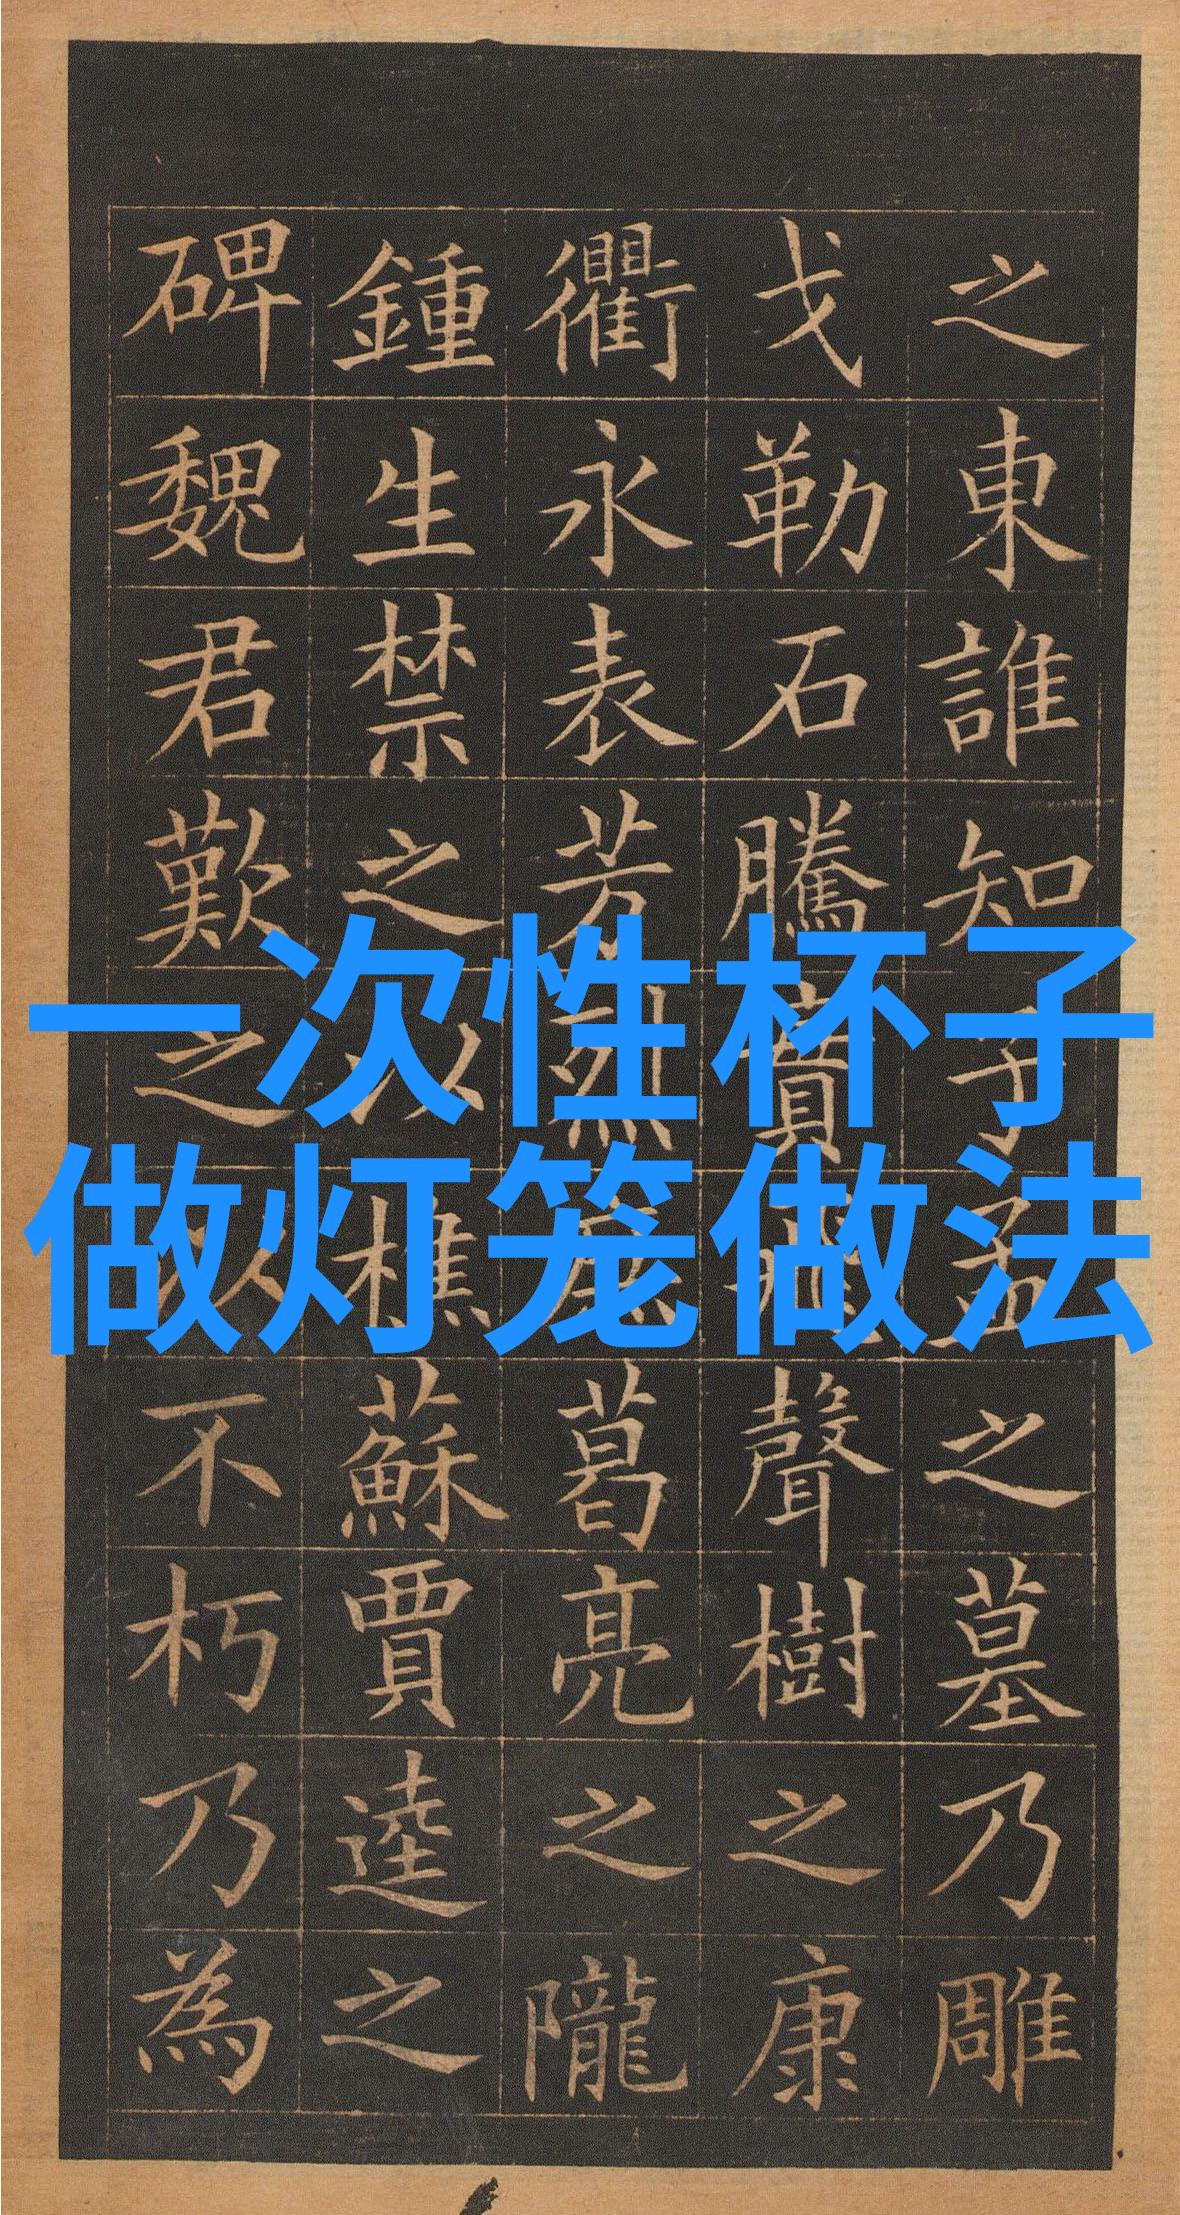 一次性杯子
做灯笼做法
之東誰知子孟之墓乃雕
戈勒石騰實聲樹之康
衢永表芳烈葛亮之隴
鍾生禁之以樵蘇賈逵之
碑魏君歎之以不朽乃為